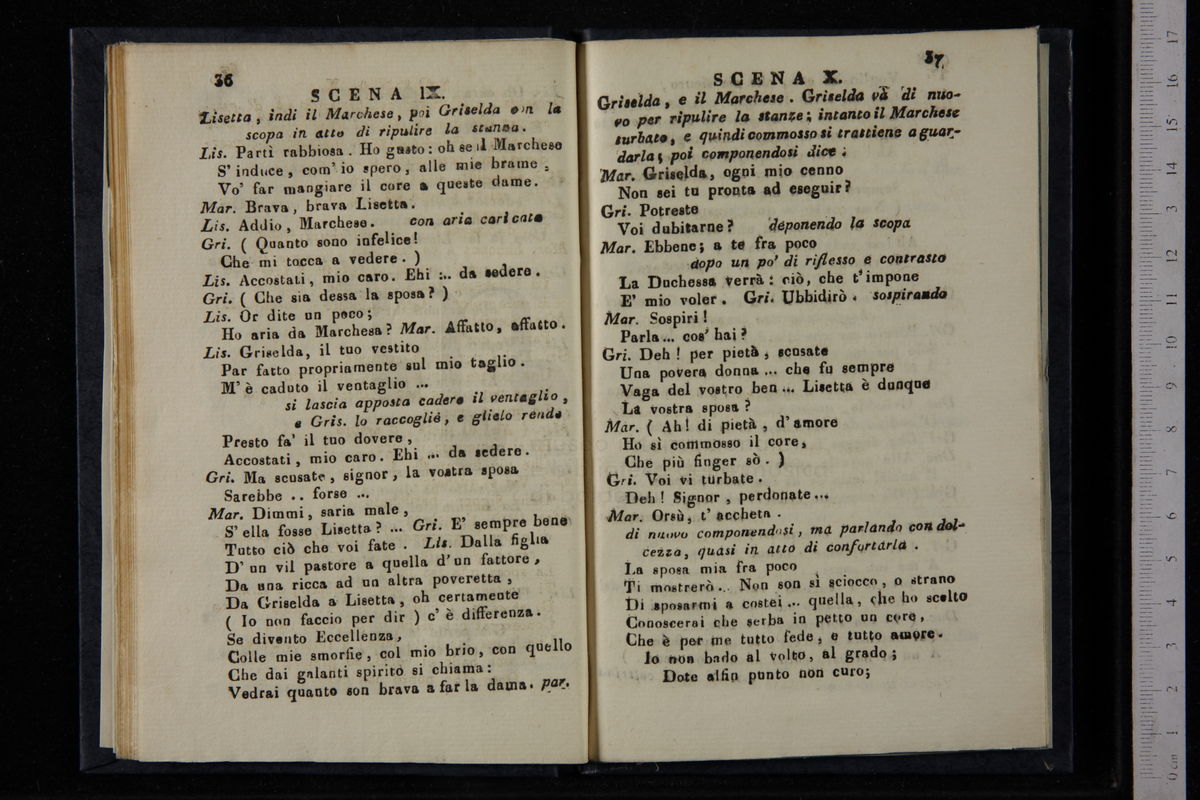 36
SCENA IX.
Lisetta, indi il Marchese, poi Griselda con la
scopa in atto di ripulire la stanza.
Lis. Partì rabbiosa. Ho gusto: oh se il Marchese
S' induce, com' io spero, alle mie brame,
Vo' far mangiare il core a queste dame.
Mar. Brava, brava Lisetta.
Lis. Addio, Marchese. con aria caricata
Gri. ( Quanto sono infelice!
Che mi tocca a vedere. )
Lis. Accostati, mio caro. Ehi ... da sedere.
Gri. ( Che sia dessa la sposa? )
Lis. Or dite un poco;
Ho aria da Marchesa? Mar. Affatto, affatto.
Lis. Griselda, il tuo vestito
Par fatto propriamente sul mio taglio.
M' è caduto il ventaglio ...
si lascia apposta cadere il ventaglio,
e Gris. lo raccoglie, e glielo rende
Presto fa' il tuo dovere,
Accostati, mio caro. Ehi ... da sedere.
Gri. Ma scusate, signor, la vostra sposa
Sarebbe .. forse ...
Mar. Dimmi, saria male,
S' ella fosse Lisetta? ... Gri. E' sempre bene
Tutto ciò che voi fate. Lis. Dalla figlia
D' un vil pastore a quella d' un fattore,
Da una ricca ad un altra poveretta,
Da Griselda a Lisetta, oh certamente
( Io non faccio per dir ) c' è differenza.
Se divento Eccellenza,
Colle mie smorfie, col mio brio, con quello
Che dai galanti spirito si chiama:
Vedrai quanto son brava a far la dama. par.
37
SCENA X.
Griselda, e il Marchese. Griselda và di nuo-
vo per ripulire la stanze; intanto il Marchese
turbato, e quindi commosso si trattiene a guar-
darla; poi componendosi dice:
Mar. Griselda, ogni mio cenno
Non sei tu pronta ad eseguir?
Gri. Potreste
Voi dubitarne? deponendo la scopa
Mar. Ebbene; a te fra poco
dopo un po' di riflesso e contrasto
La Duchessa verrà: ciò, che t' impone
E' mio voler. Gri. Ubbidirò. sospirando
Mar. Sospiri!
Parla... cos' hai?
Gri. Deh! per pietà, scusate
Una povera donna ... che fu sempre
Vaga del vostro ben ... Lisetta è dunque
La vostra sposa?
Mar. ( Ah! di pietà, d' amore
Ho sì commosso il core,
Che più finger sò. )
Gri. Voi vi turbate.
Deh! Signor, perdonate...
Mar. Orsù, t' accheta.
di nuovo componendosi, ma parlando con dol-
cezza, quasi in atto di confortarla.
La sposa mia fra poco
Ti mostrerò... Non son sì sciocco, o strano
Di sposarmi a costei ... quella, che ho scelto
Conoscerai che serba in petto un core,
Che è per me tutto fede, e tutto amore.
Io non bado al volto, al grado;
Dote alfin punto non curo;